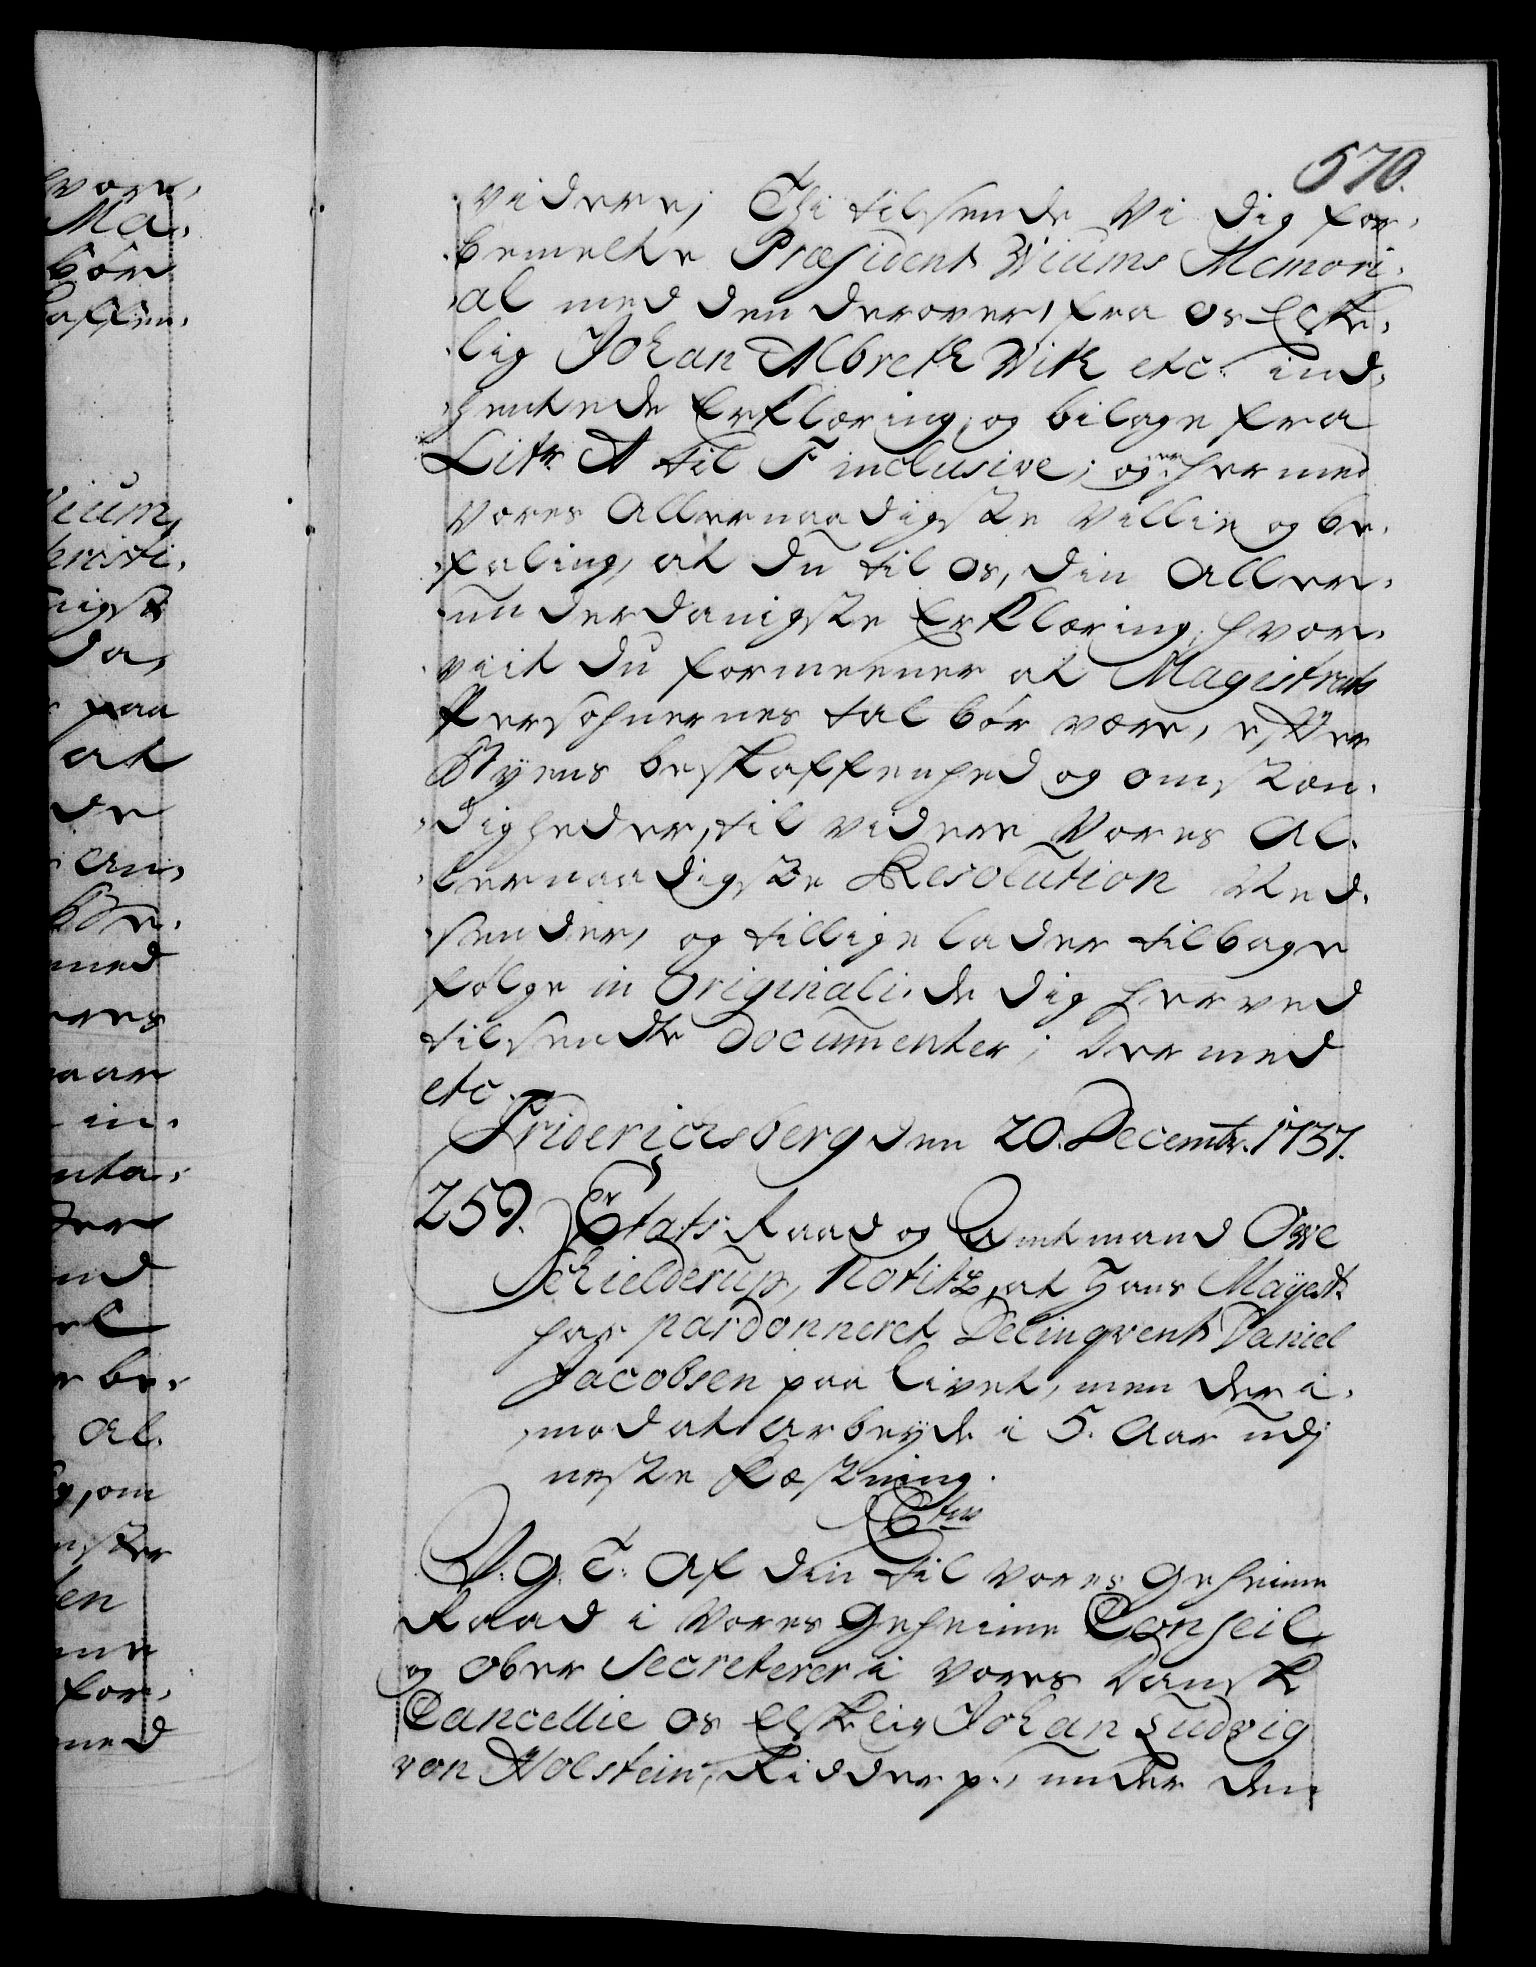 570.
videre; Thi tilsende Vi dig for-
bemelte Præsident Wiums Memori-
al med den derover, fra os Elske-
lig Johan Albreth With etc. ind-
hentede Erklæring, og bilage fra
Litr A til F inclusive; og er hermed
Vores Allernaadigste Villie og be-
faling, at du til os, din Aller-
underdanigste Erklæring, hvor-
viit du formeener at Magistrats
Persohnernes tal bør være, efter
Byens beskaffenhed og omstæn-
digheder, til videre Vores Al-
lernaadigste Resolution ned-
sender, og tillige lader tilbage
følge in Originali de dig herved
tilsendte Documenter; Dermed
etc.
Friderichsberg den 20. Decembr. 1737.
259. Etats Raad og Amtmand Owe
Schielderup, Notitz, at Hans Mayest:
har pardonneret Delinqventen Daniel
Jacobsen paa Livet, men der i-
mod at arbeyde i 5. Aar udj
neste Fæstning.
C 6tus
V. G. T. Af din til Vores Geheime
Raad i Vores Geheime Conseil,
og ober Secreterer i Vores Danske
Cancellie os Elskelig Johan Ludvig
von Holstein, Ridder p., under den